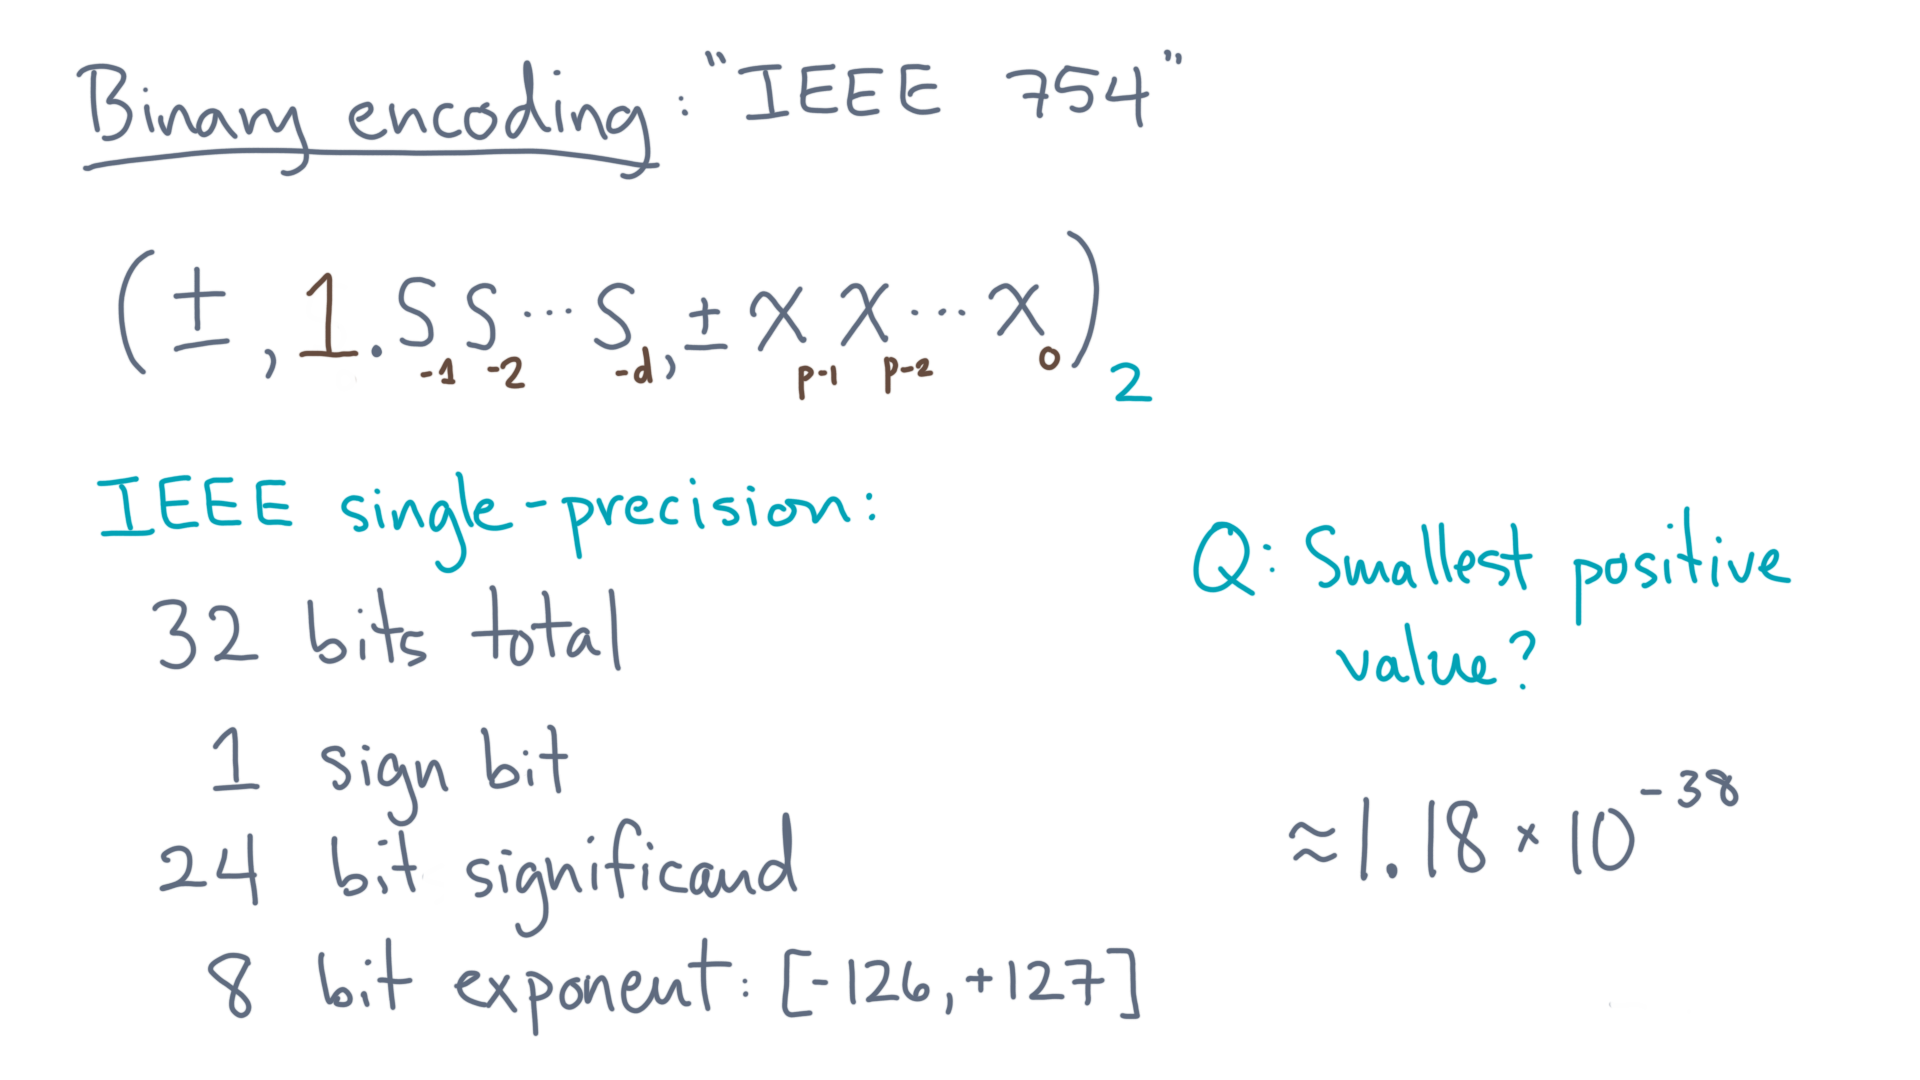 Binary encoding: "IEEE 754"
(±, 1.S₋₁S₋₂⋯S₋d, ±xₚ₋₁xₚ₋₂⋯x₀)₂
IEEE single-precision:
32 bits total
1 sign bit
24 bit significand
8 bit exponent: [-126, +127]
Q: Smallest positive
value?
≈1.18 × 10⁻³⁸